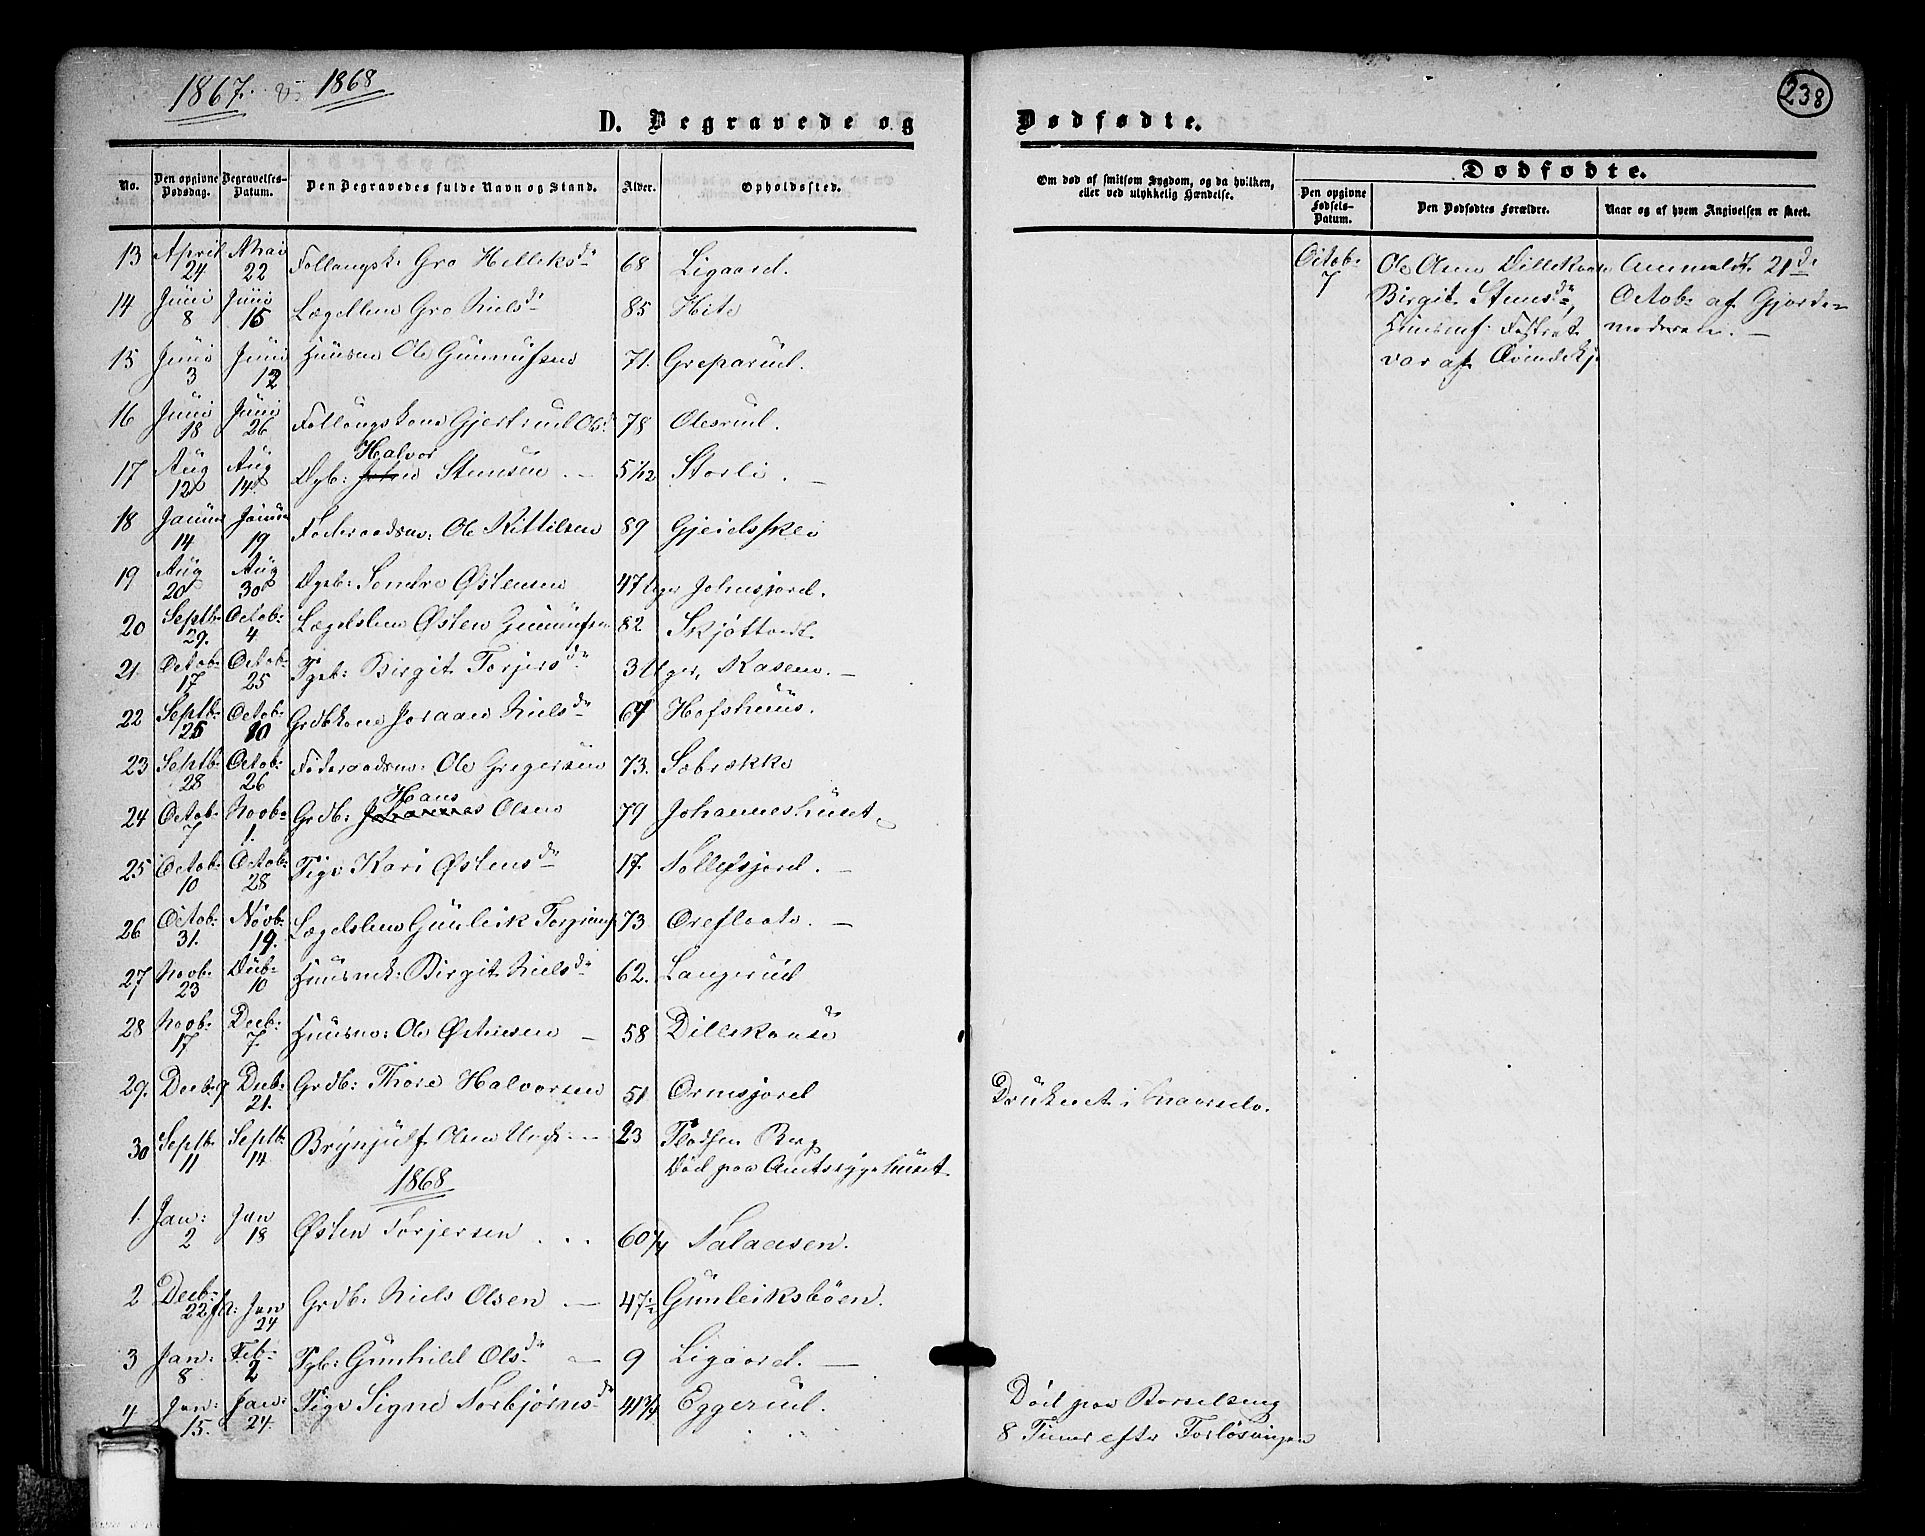 1867. & 1868
238
D. Begravede og Dødfødte.
No. Den opgivne Dødsdag. Begravelses-Datum. Den Begravedes fulde Navn og Stand. Alder. Opholdssted.
Om død af smitsom Sygdom, og da hvilken, eller ved ulykkelig Hændelse.
Dødfødte.
Den opgivne Fødsels-Datum. Den Dødfødtes Forældre. Naar og af hvem Angivelsen er skeet.
13 April 24 Mai 22 Gro Helleksdr 68 Ligaard.
14 Juni 8 Juni 15 Lægdslem Gro Nielsdr 85 Hite
15 Juni 3 Juni 12 Huusm Ole Gunnufsen 71. Greparud.
16 Juni 18 Juni 26 Gjertrud Olsd 78 Olesrud.
17 Aug 12 Aug 14 Halvor Stensen 5 1/12 Storli. —
18 Januar 14 Januar 19 Føderaadsm: Ole Kittilsen 89 Gjeidsskei
19 Aug 20 Aug 30 Sondre Østensen 47 Uger Johnsjord.
20 Septb: 29. Octob: 4 Lægdslem Østen Gunnufsen 82
21. Octob: 17 Octob: 25 Pgeb: Birgit Torjersdr 3 Uger, Kasene. —
22 Septb: 25 Octob: 10 Grdbkone Joraan Nielsdr 67 Hofshuus.
23 Septb: 28 Octob: 26 Føderaadsm: Ole Gregersen 73. Sebrekke
24 Octob: 7 Novb: 1. Grdb: Hans Olsen 79 Johanneshuset
25 Octob: 10 Octob: 28 Pige Kari Østensdr 17. Tollefsjord. —
26 Octob: 31. Novb: 19. Lægdslem Gunleik 73 Oreflaate. —
27 Novb: 23 Decb: 10 Huusmk: Birgit Nielsdr 62. Langerud
28 Novb: 17 Decb: 7. Huusm: Ole Østensen — 58 Dillekaase
29. Decb: 9 Decb: 21. Grdb: Thore Halvorsen 51 Ormsjord Druknet i
30 Septb: 11 Septb: 14 Brynjulf Olsen 23 Berg
Død paa Amtssygehuset
1868
1. Jan: 2 Jan 18 Østen Torjersen 60 Talaasen.
2 Decb: 22 Jan 24 Grdb: Niels Olsen — 47 1/2 Gunleiksbøen.
3 Jan: 8 Feb: 2 Pgb: Gunhild Olsdr — 9 Ligaard. —
4 Jan: 15. Jan: 24. Pige Signe Torbjørnsdr 41 3/4 Eggerud.
Død paa Barselseng
8 Timer efter Forløsningen
Octob: 7
Ole Olsen Dillekaase Anmeldt 21d:
Birgit Stensdr, Octob: af Gjorde-
moderen. —
var af